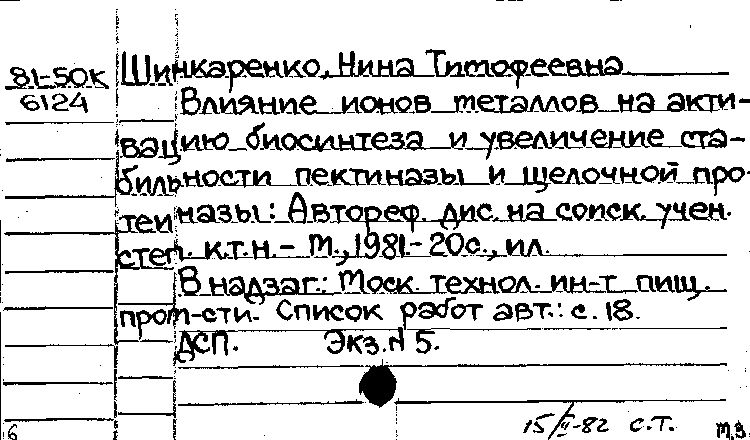 81-50К Шинкаренко, Нина Тимофеевна
6124 Влияние ионов металлов на акти-
вацию биосинтеза и увеличение ста-
бильности пектиназы и щелочной про-
теиназы: Автореф. дис. на соиск. учен.
степ. к.т.н. – М., 1981. – 20с., ил.
В надзаг.: Моск. технол. ин-т пищ.
пром-сти. Список работ авт.: с. 18.
ДСП. Экз. N 5.
15/II-82 с.т.
6